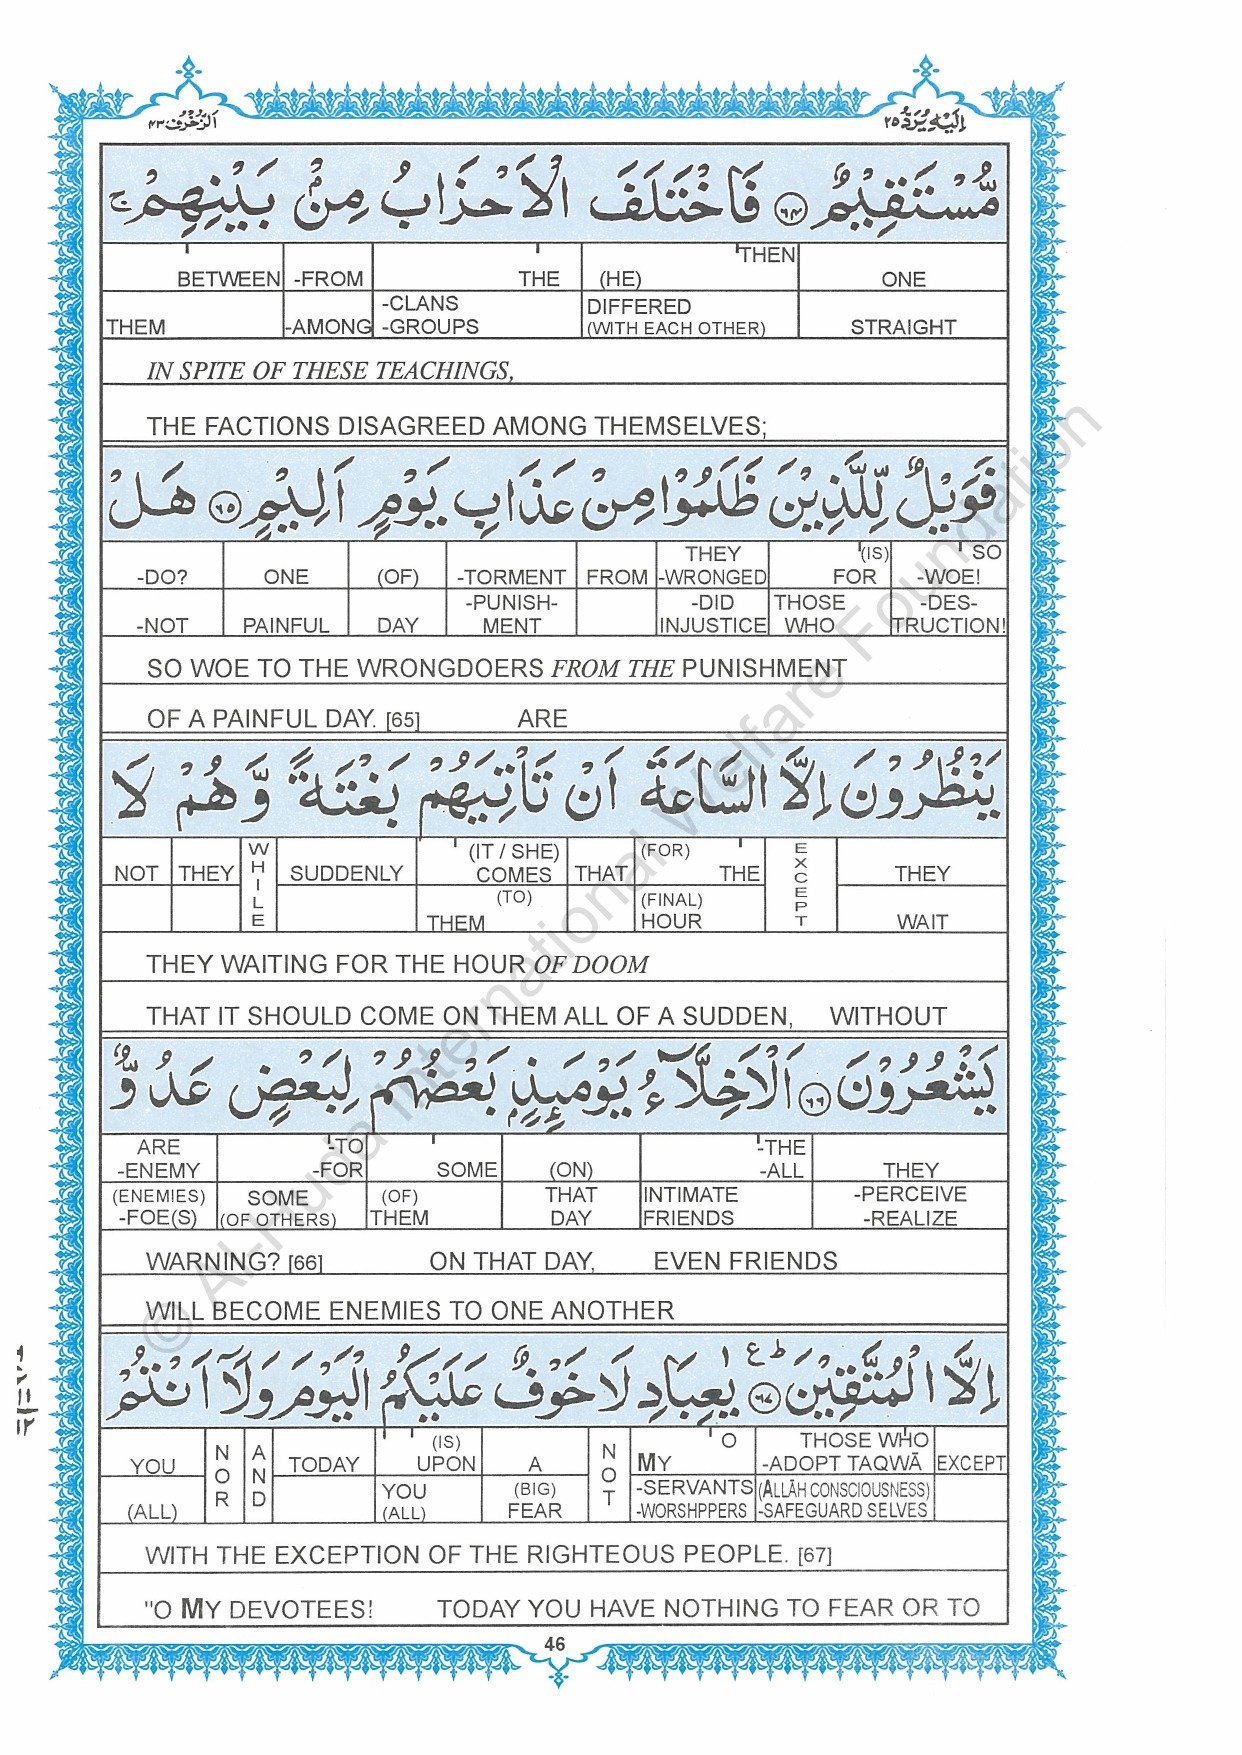 اَلزُّخْرُف ٤٣
اِلَيْهِ يُرَدُّ ٢٥
مُّسْتَقِيْمٌ ٦٤ فَاخْتَلَفَ الْاَحْزَابُ مِنْۢ بَيْنِهِمْ ۚ
BETWEEN -FROM THE (HE) THEN ONE
THEM -AMONG -CLANS -GROUPS DIFFERED (WITH EACH OTHER) STRAIGHT
IN SPITE OF THESE TEACHINGS,
THE FACTIONS DISAGREED AMONG THEMSELVES;
فَوَيْلٌ لِّلَّذِيْنَ ظَلَمُوْا مِنْ عَذَابِ يَوْمٍ اَلِيْمٍ ٦٥ هَلْ
-DO? ONE (OF) -TORMENT FROM THEY -WRONGED (IS) FOR SO -WOE!
-NOT PAINFUL DAY -PUNISH- MENT -DID INJUSTICE THOSE WHO -DES- TRUCTION!
SO WOE TO THE WRONGDOERS FROM THE PUNISHMENT
OF A PAINFUL DAY. [65] ARE
يَنْظُرُوْنَ اِلَّا السَّاعَةَ اَنْ تَاْتِيَهُمْ بَغْتَةً وَّهُمْ لَا
NOT THEY WHILE SUDDENLY (IT / SHE) COMES THAT (FOR) THE EXCEPT THEY
(TO) THEM (FINAL) HOUR WAIT
THEY WAITING FOR THE HOUR OF DOOM
THAT IT SHOULD COME ON THEM ALL OF A SUDDEN, WITHOUT
يَشْعُرُوْنَ ٦٦ اَلْاَخِلَّآءُ يَوْمَئِذٍۭ بَعْضُهُمْ لِبَعْضٍ عَدُوٌّ
ARE -ENEMY -TO -FOR SOME (ON) -THE -ALL THEY
(ENEMIES) -FOE(S) SOME (OF OTHERS) (OF) THEM THAT DAY INTIMATE FRIENDS -PERCEIVE -REALIZE
WARNING? [66] ON THAT DAY, EVEN FRIENDS
WILL BECOME ENEMIES TO ONE ANOTHER
اِلَّا الْمُتَّقِيْنَ ٦٧ ط ع ١ يٰعِبَادِ لَا خَوْفٌ عَلَيْكُمُ الْيَوْمَ وَلَآ اَنْتُمْ
YOU NOR AND TODAY (IS) UPON A NOT MY O THOSE WHO -ADOPT TAQWĀ EXCEPT
(ALL) YOU (ALL) (BIG) FEAR -SERVANTS -WORSHPPERS (ALLĀH CONSCIOUSNESS) -SAFEGUARD SELVES
WITH THE EXCEPTION OF THE RIGHTEOUS PEOPLE. [67]
"O MY DEVOTEES! TODAY YOU HAVE NOTHING TO FEAR OR TO
46
© Al-Huda International Welfare Foundation